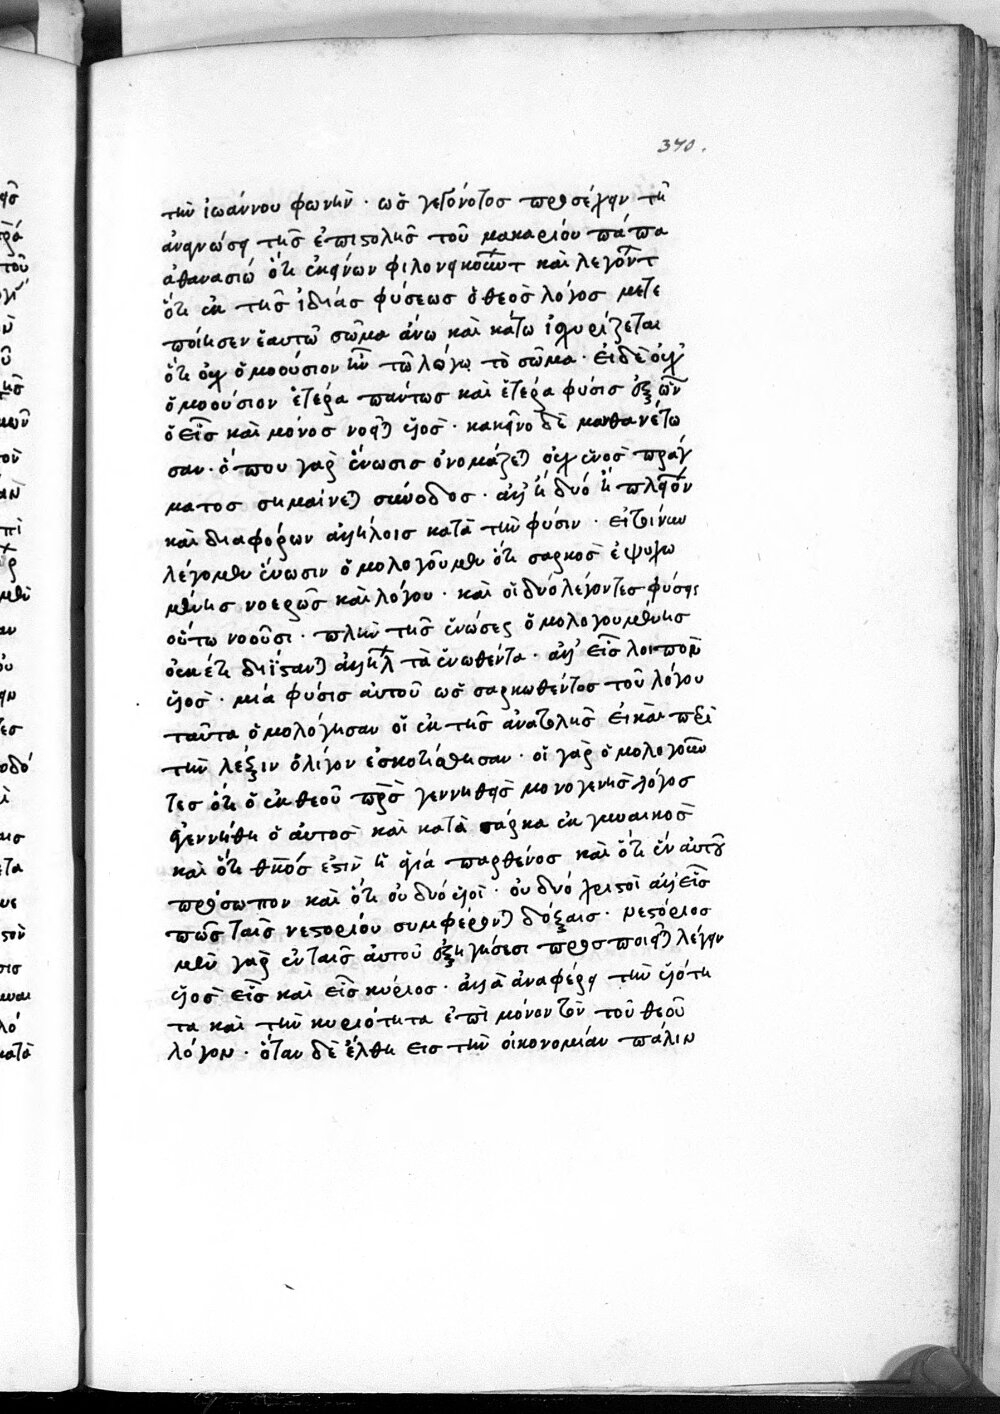 370.
τὴν ἰωάννου φωνὴν · ὡς γεγονότος προσέχειν τῆ
ἀναγνώσει τῆς ἐπιστολῆς τοῦ μακαρίου πάπα
ἀθανασίω ὅτι ἐκείνων φιλονεικούντ καὶ λεγόντ
ὅτι ἐκ τῆς ἰδίας φύσεως ὁ θεὸς λόγος μετε
ποίησεν ἑαυτῶ σῶμα ἄνω καὶ κάτω ἰσχυρίζεται
ὅτι οὐχ ὁμοούσιον ἦν τῶ λόγω τὸ σῶμα · εἰ δὲ οὐχ
ὁμοούσιον ἑτέρα πάντως καὶ ἑτέρα φύσις ἐξ ὧν
ὁ εἷς καὶ μόνος νοεῖται υἱός · κἀκεῖνο δὲ μανθανέτω
σαν · ὅπου γὰρ ἕνωσις ὀνομάζεται οὐχ ἑνὸς πράγ
ματος σημαίνεται σύνοδος · ἀλλ' ἢ δύο ἢ πλειόν
καὶ διαφόρων ἀλλήλοις κατὰ τὴν φύσιν · εἰ τοίνυν
λέγομεν ἕνωσιν ὁμολογοῦμεν ὅτι σαρκὸς ἐψυχω
μένης νοερῶς καὶ λόγου · καὶ οἱ δύο λέγοντες φύσεις
οὕτω νοοῦσι · πλὴν τῆς ἑνώσες ὁμολογουμένης
οὐκέτι διΐστανται ἀλλήλ τὰ ἑνωθέντα · ἀλλ' εἷς λοιπὸν
υἱός · μία φύσις αὐτοῦ ὡς σαρκωθέντος τοῦ λόγου
ταῦτα ὁμολόγησαν οἱ ἐκ τῆς ἀνατολῆς εἰ καὶ περὶ
τὴν λέξιν ὀλίγον ἐσκοτίσθησαν · οἱ γὰρ ὁμολογοῦν
τες ὅτι ὁ ἐκ θεοῦ πρς γεννηθεὶς μονογενὴς λόγος
ἐγεννήθη ὁ αὐτὸς καὶ κατὰ σάρκα ἐκ γυναικὸς
καὶ ὅτι θκός ἐστὶν ἡ ἁγία παρθένος καὶ ὅτι ἓν αὐτοῦ
πρόσωπον καὶ ὅτι οὐ δύο υἱοὶ · οὐ δύο χριστοὶ ἀλλ' εἷς
πῶς ταῖς νεστορίου συμφέρονται δόξαις · νεστόριος
μὲν γὰρ ἐν ταῖς αὐτοῦ ἐξηγήσεσι προσποιεῖται λέγειν
υἱὸς εἷς καὶ εἷς κύριος · ἀλλὰ ἀναφέρει τὴν υἱότη
τα καὶ τὴν κυριότητα ἐπὶ μόνον τὸν τοῦ θεοῦ
λόγον · ὅταν δὲ ἔλθη εἰς τὴν οἰκονομίαν πάλιν